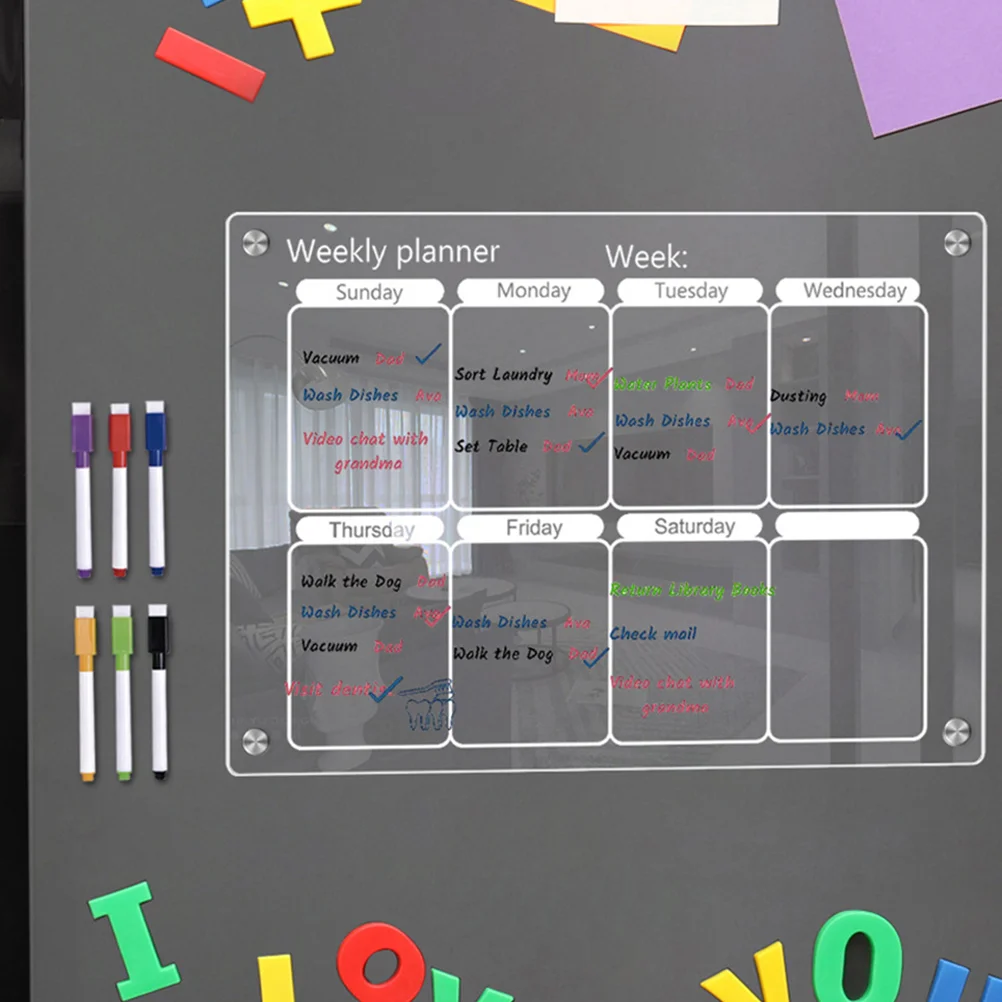 Weekly planner
Week:
Sunday
Monday
Tuesday
Wednesday
Vacuum Dad
Wash Dishes Ava
Video chat with
grandma
Sort Laundry
Wash Dishes Ava
Set Table Dad
Water Plants Dad
Wash Dishes
Vacuum Dad
Dusting Mum
Wash Dishes Ava
Thursday
Friday
Saturday
Walk the Dog Dad
Wash Dishes
Vacuum Dad
Visit dentist
Wash Dishes Ava
Walk the Dog Dad
Return Library Books
Check mail
Video chat with
grandma
I
LOV
YOU